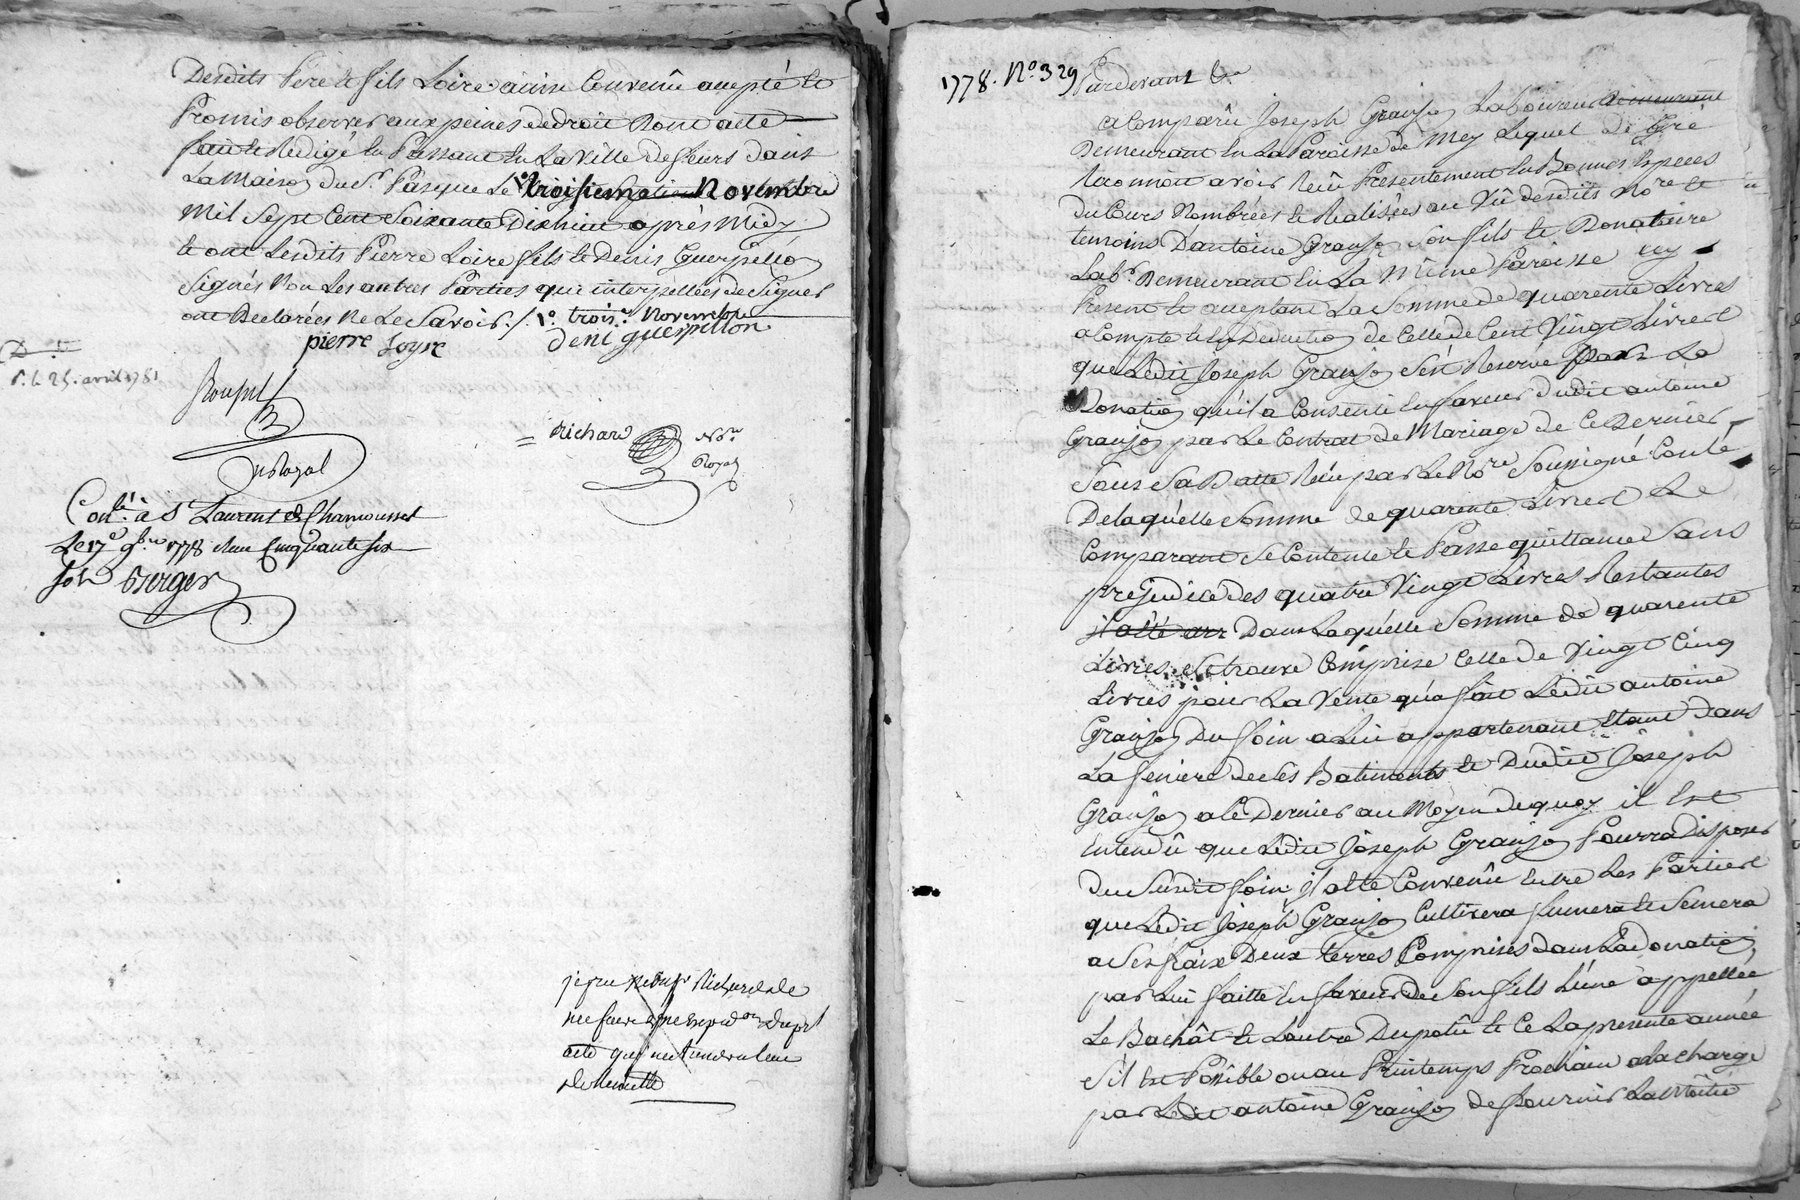 Desdits Pere et fils Loire ainsi Convenû accepté et
Promis observer aux peines de droit Dont acte
fait et Redigé En Passant En La ville de feurs dans
La Maison du Sr. Pasque Le troisieme Novembre
Mil Sept Cent Soixante Dixhuit après Midy
et ont Lesdits Pierre Loire fils et Denis Guerpillon
Signés Non Les autres Parties que interpellées de Signer
ont Declarées Ne Le Savoir ./. 1o. troise. Novembre
pierre Loyre
deni guerpillon
P. le 25. avril 1781
Richard Nore.
Royal
N Royal
Conlé. à St Laurent de Chamousset
Le 17e 9bre 1778 Recu Cinquante six
sols Berger
acte
1778. No. 329
Pardevant &a
a Comparû Joseph Granjon Laboureur demeurant
Demeurant En La Paroisse de Mey Lequel de Gré
Reconnoit avoir Reçû Presentement En Bonnes Especes
du Cours Nombrées et Realisées au Vû desdits Nore et
temoins D'antoine Granjon Son fils et Donataire
Labr. Demeurant En La Même Paroisse icy
Present et acceptant La Somme de quarente Livres
a Compte et En Deduction de Celle de Cent Vingt Livres
que Ledit Joseph Granjon S'est Reservé Par La
Donation qu'il a Consenti En faveur dudit antoine
Granjon par Le Contrat de Mariage de Ce Dernier
Sous Sa Datte Reçu par Le Nore Soussigné Conlé
De laquelle Somme de quarente Livres Le
Comparant Se Contente et Passe quittance Sans
prejudice des quatre Vingt Livres Restantes
il a été Dans Laquelle Somme de quarente
Livres Se trouve Comprise Celle de Vingt Cinq
Livres pour La Vente qu'a fait Ledit antoine
Granjon Du foin a Lui appartenant Etant dans
La feniere de Ses Batiments et Dudit Joseph
Granjon a Ce Dernier au Moyen de quoy il Est
Entendû que Ledit Joseph Granjon Pourra Disposer
du Susdit foin il a été Convenû Entre Les Parties
que Ledit Joseph Granjon Cultivera fumera et Semera
a Ses fraix Deux terres Comprises dans La donation
par Lui faitte En faveur de Son fils L'une appellée
Le Bachât et L'autre Du patû et Ce La presente année
S'il Est Possible ou au Printemps Prochain a la charge
par Ledit antoine Granjon de fournir La Moitié